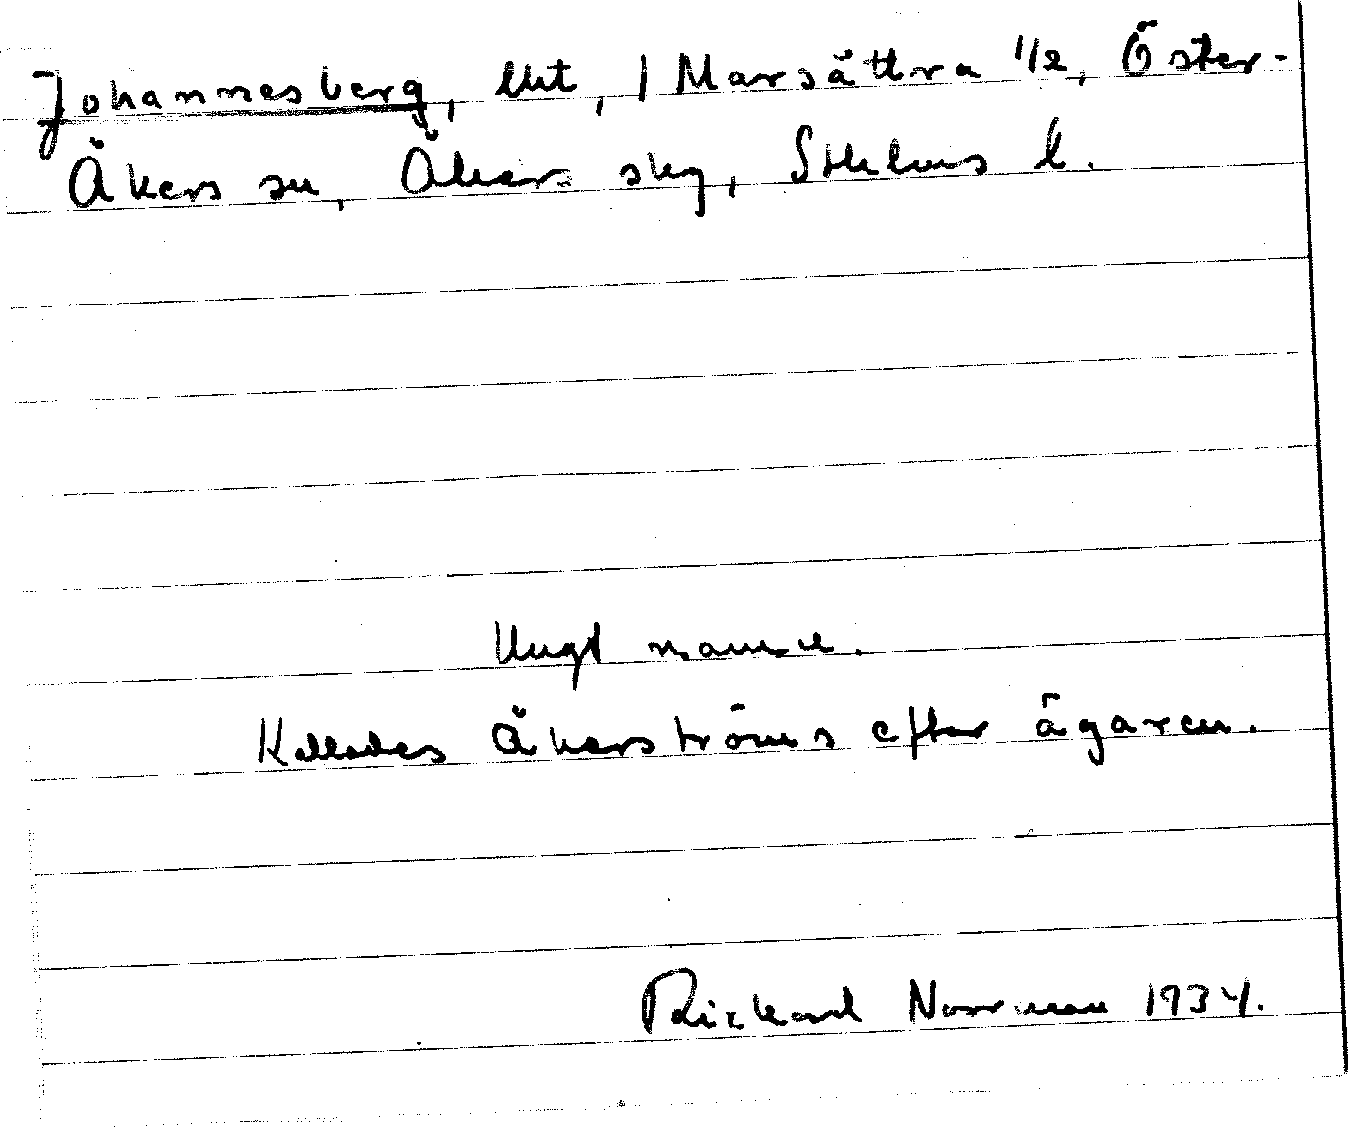 Johannesberg, lht, 1 Marsättra 1/2, Öster-
Åkers sn, Åkers skg, Sthlms l.
Ungt namn.
Kallades Åkerströms efter ägaren.
Rickard Norrman 1934.